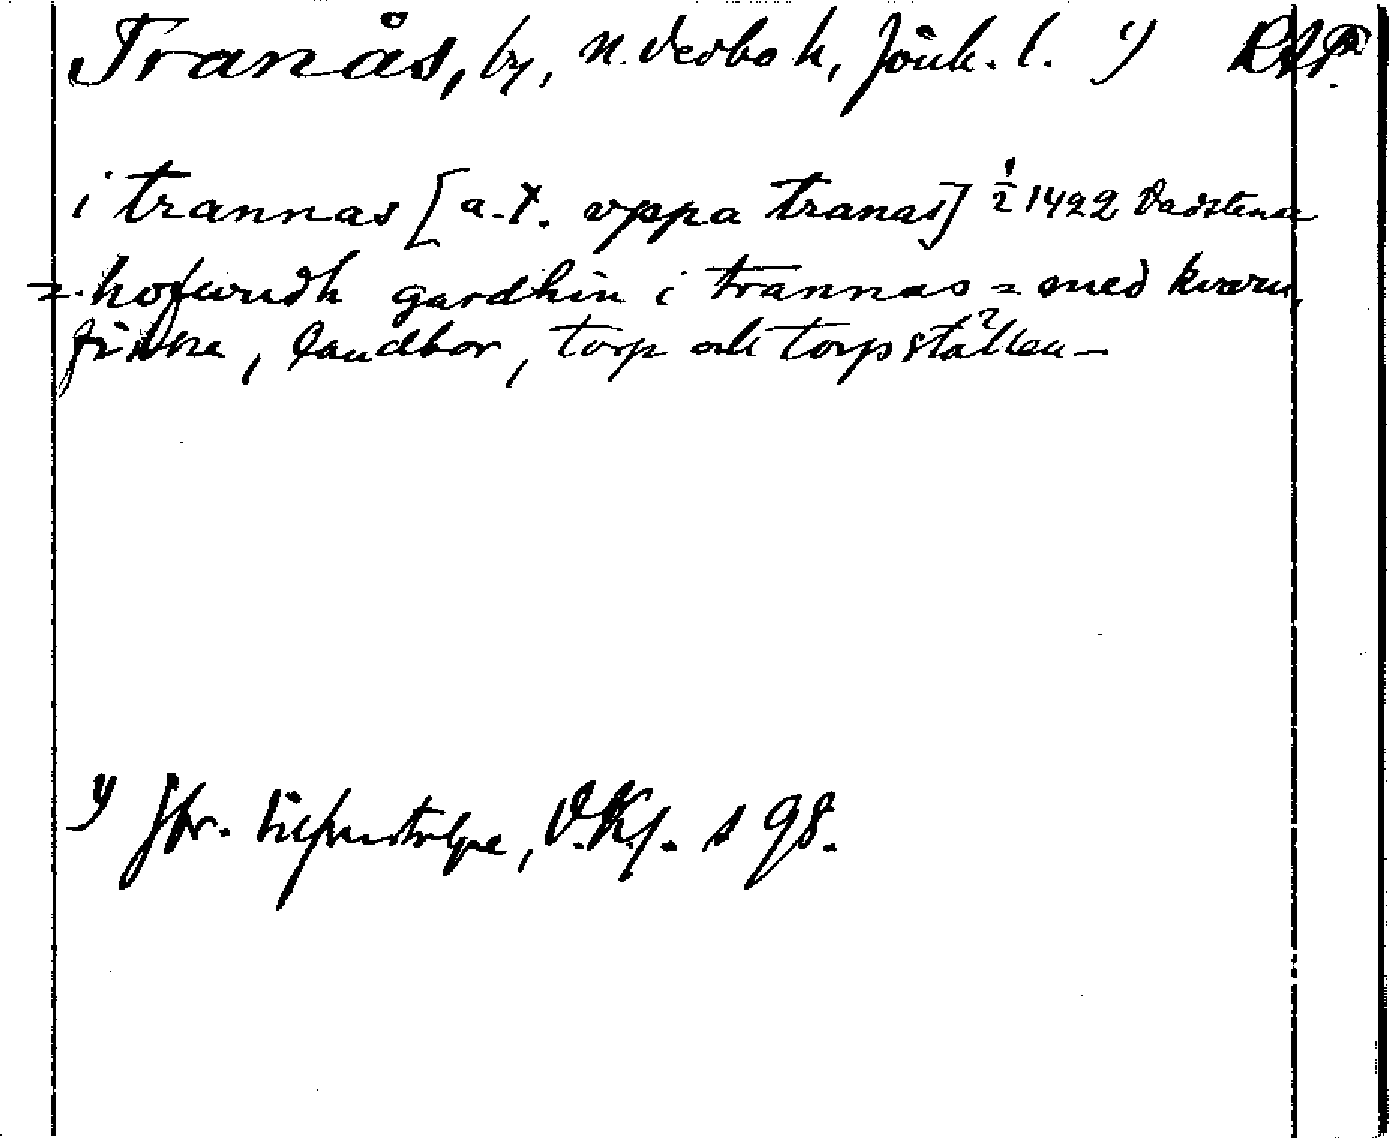 Tranås, by, N. Vedbo h, Jönk. l. 1) RAP
i trannas [a. t. vppa tranas] 1/2 1422 Vadstena
=hofwudh gardhin i trannas = med kvarn,
fiske, landbor, torp och torpställen –
1) Jfr. Silfverstolpe, V.Kl. s 98.